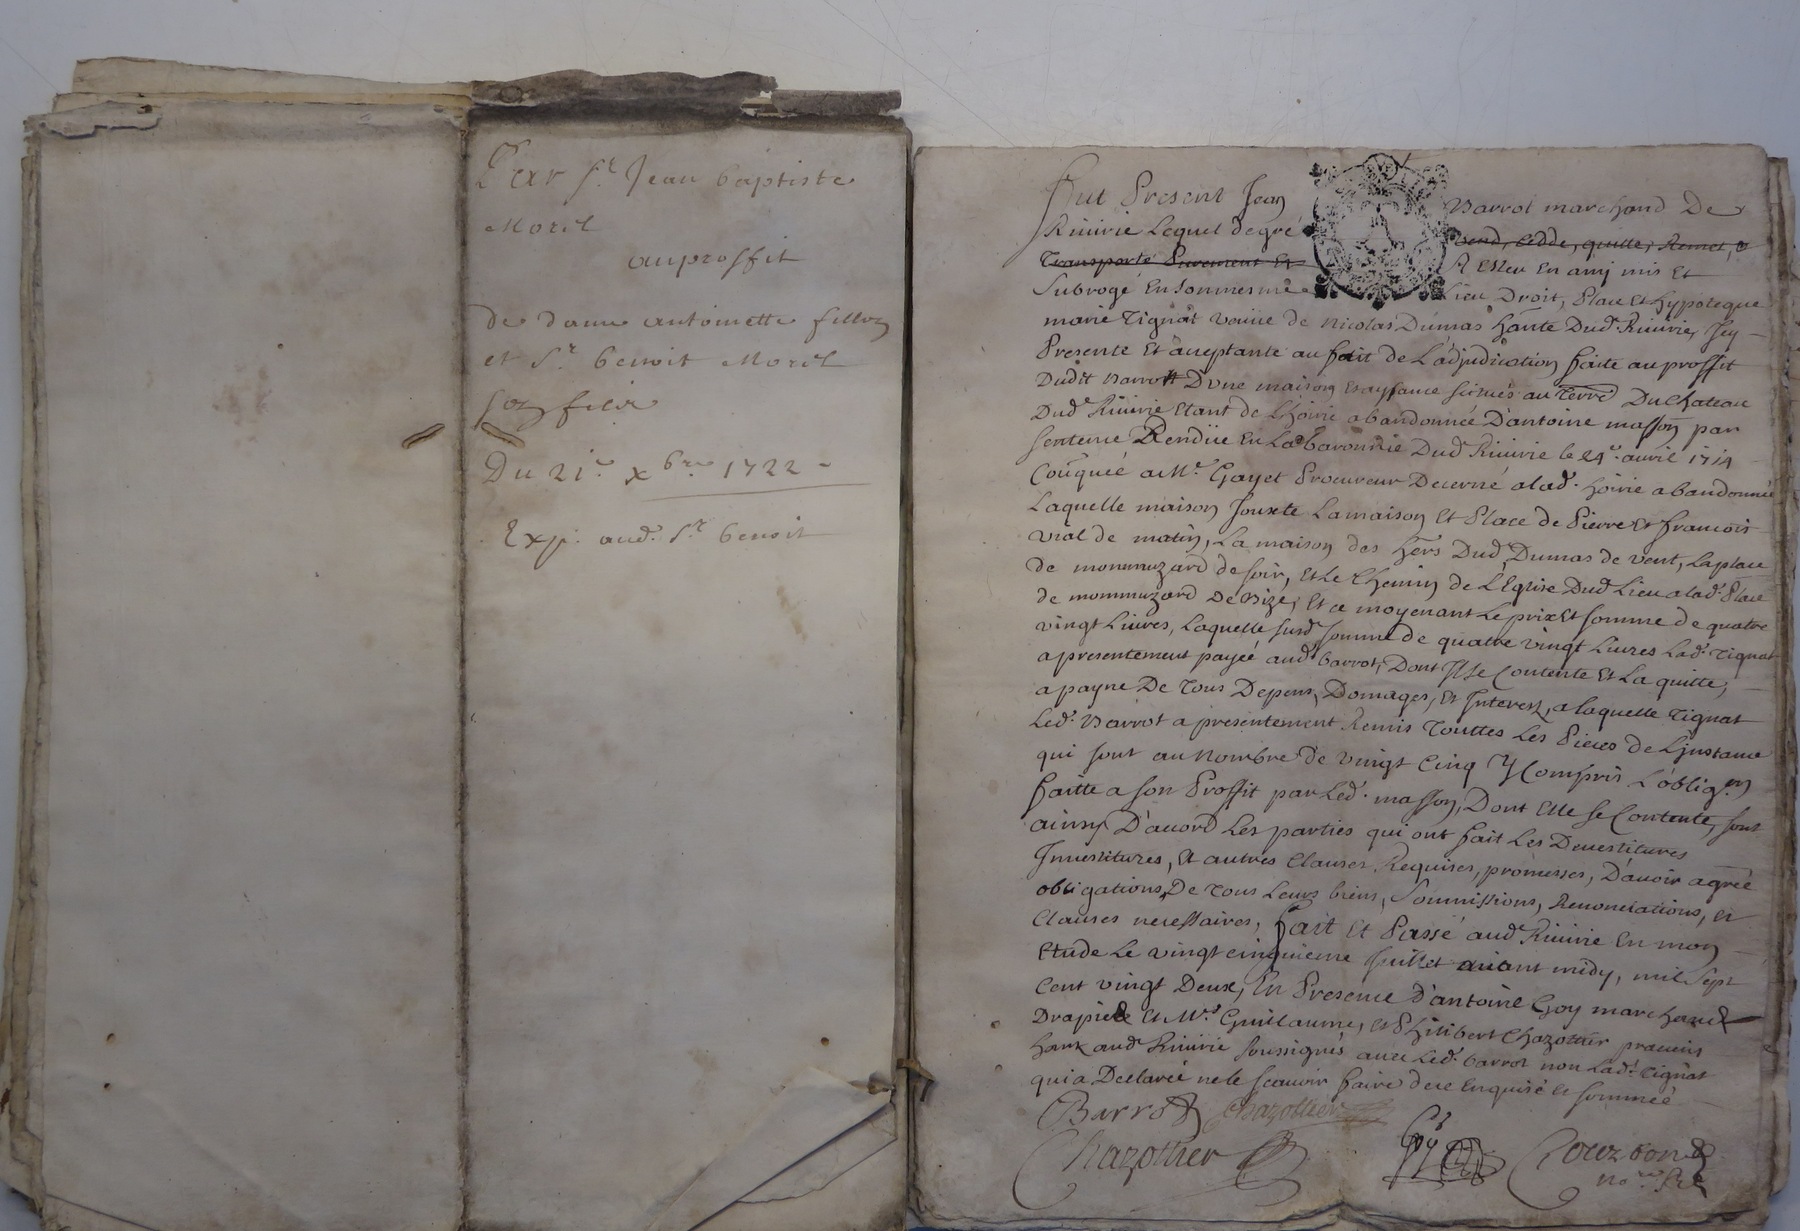 Par Sr. Jean baptiste
Morel
au proffit
de dame antoinette fillon
et Sr. benoit Morel
son filz
Du 21e. xbre 1722
Exp. aud. Sr benoit
Fut Present Jean Barrot marchand De
Riuirie Lequel de gré vend, cedde, quitte, Remet, &
Transporte Purement Et A Esleu En amy mis Et
Subrogé En son mesme Lieu Droit, Place Et hypoteque
marie Tignat veuue de Nicolas Dumas hante Dud. Riuirie, Icy
Presente Et aceptante au fait de L'adjudication faite au proffit
Dudit Barrot D'vne maison Et aysance scitués au Terre Du Chateau
Dud. Riuirie Etant de L'hoirie abandonnée D'antoine masson par
sentence Rendüe En La baronnie Dud. Riuirie le 24e. auril 1714
a Me. Gayet Procureur Decerné a lad. hoirie abandonnée
Laquelle maison Jouxte La maison Et Place de Pierre Et francois
vial de matin, La maison des hers Dud. Dumas de vent, La place
de mommuzard de soir, Et Le Chemin de L'Eglise Dud. Lieu a lad. Place
de mommuzard De Bize, Et ce moyenant Le prix Et somme de quatre
vingt Liures, Laquelle susd. somme de quatre vingt Liures Lad. Tignat
a presentement payeé aud. barrot, Dont Il se Contente Et La quitte,
a payne De Tous Depens, Domages, Et Interestz, a laquelle Tignat
Led. Barrot a presentement Remis Touttes Les Pieces de L'instance
qui sont au Nombre de vingt Cinq Y Compris L'oblig.on
faitte a son Proffit par Led. masson, Dont Elle se Contente, sont
ainsy D'acord Les parties qui ont fait Les Deuestitures
Inuestitures, Et autres Clauses Requises, promesses, D'auoir agreé
obligations De Tous Leurs biens, Soumissions, Renonciations, Et
Clauses necessaires, fait Et Passé aud. Riuirie En mon
Etude Le vingt cinquieme Juillet auant midy, mil Sept
Cent vingt Deux, En Presence d'antoine Goy marchand
Drapier Et Mes. Guillaume, Et Philibert Chazottier praticiens
hantz aud. Riuirie soussignés auec Led. barrot non Lad. Tignat
qui a Declareé ne le scauoir faire de ce Enquise Et sommeé
Barrot Chazottier
Chazottier Goy Courbon
nore. Rl